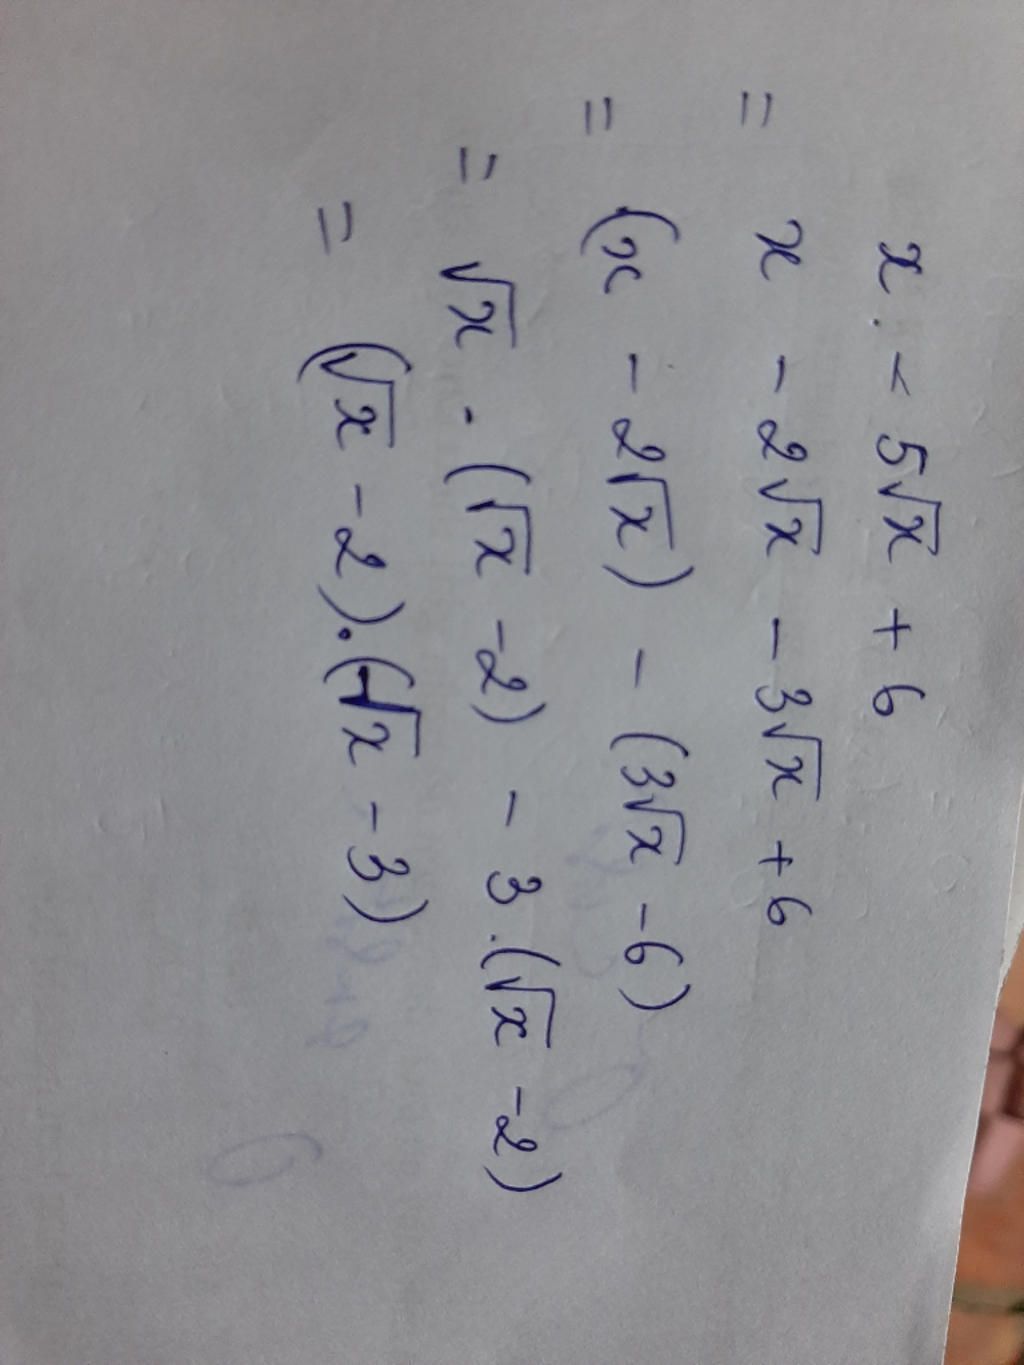 x - 5√x + 6
= x - 2√x - 3√x + 6
= (x - 2√x) - (3√x - 6)
= √x . (√x - 2) - 3.(√x - 2)
= (√x - 2).(√x - 3)